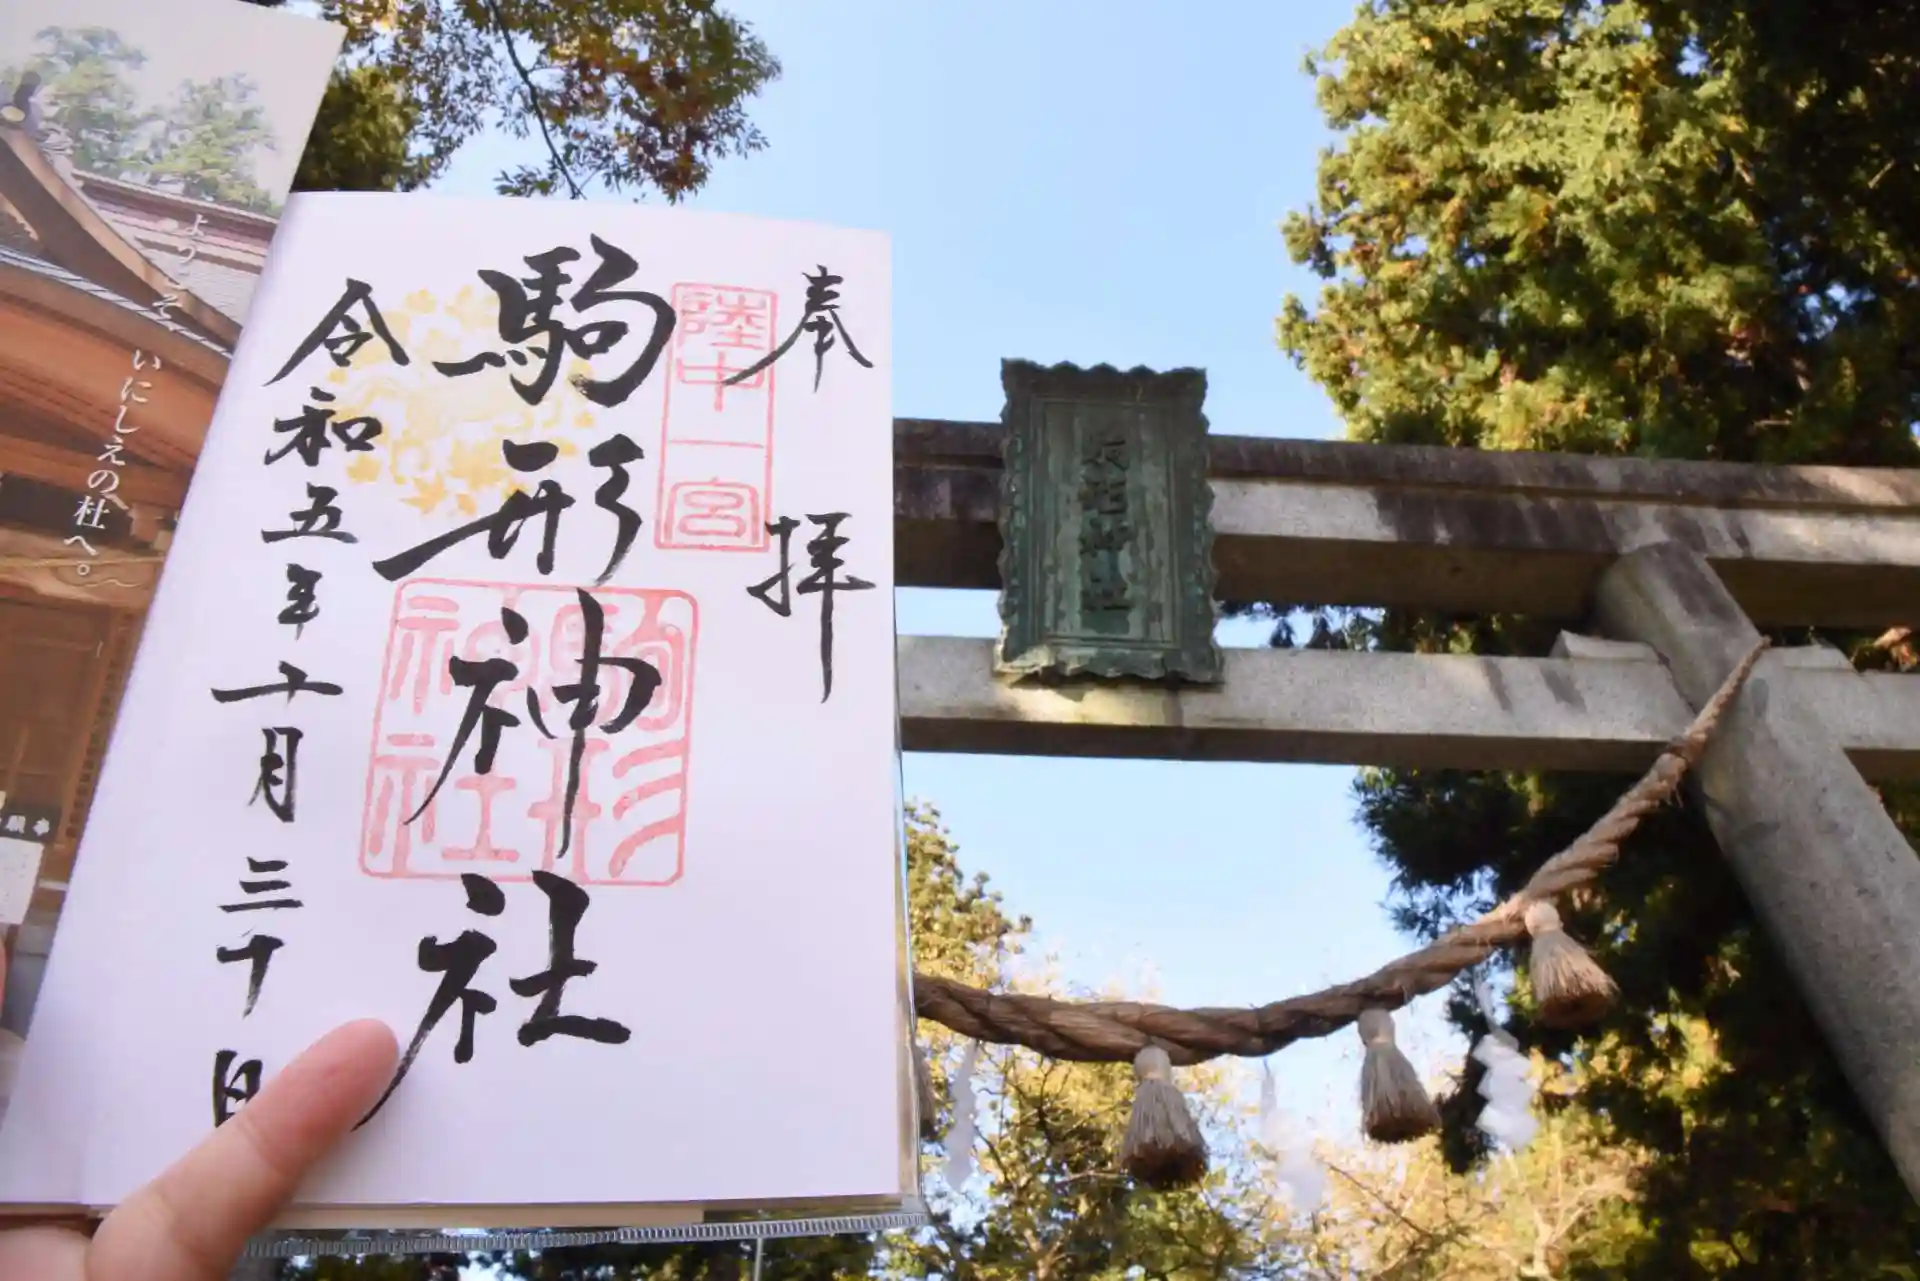 奉拝
陸中一宮
駒形神社
駒形
神社
令和五年十月三十日
駒形神社
ようこそ
いにしえの杜へ。